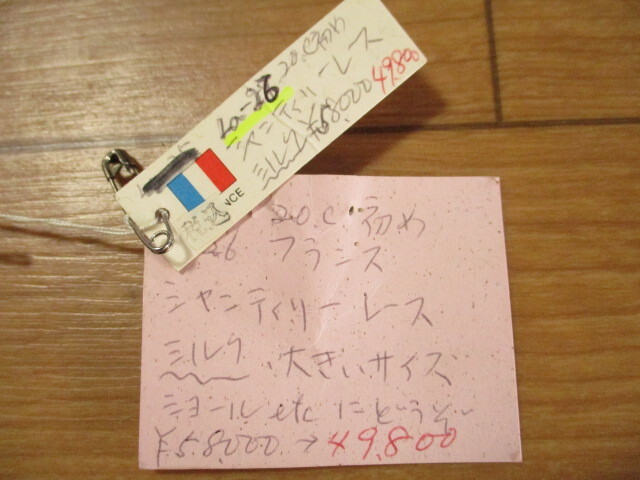 20.C初め
26-07
シャンティリーレス
ミルク ¥58000 49800
NCE
発送
20.C 初め
26 フランス
シャンティリーレース
ミルク、大きいサイズ
ショール etc にどうぞ
¥58.000. → 49.800